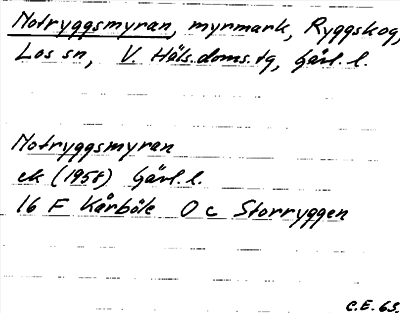 Notryggsmyran, myrmark, Ryggskog,
Los sn, V. Häls.doms.tg, Gävl. l.
Notryggsmyran
ek (1958) Gävl. l.
16 F Kårböle O c Storryggen
C.E. 63.